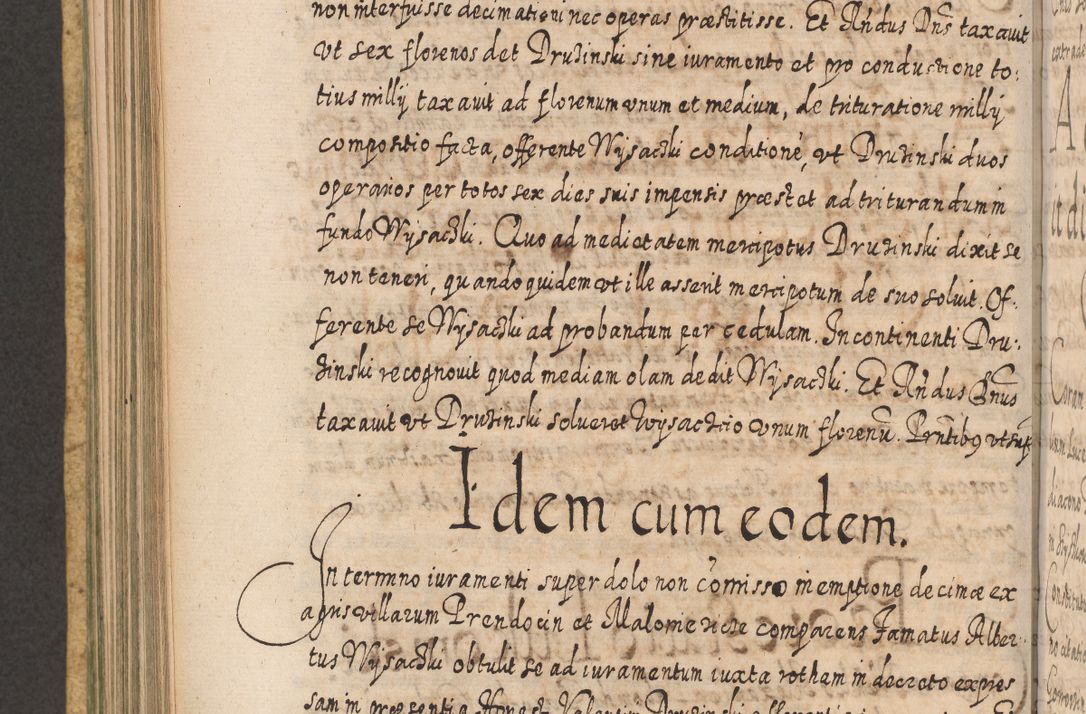 non interfuisse decimationi nec operas præstitisse. Et Rndus Dns taxavit
vt sex florenos det Druzinski sine iuramento et pro conductione to:
tius milly taxauit ad florenum vnum et medium, de trituratione milly
compositio facta, offerente Wysaczki conditione, vt Druzinski duos
operarios per totos sex dies suis impensis præstet ad triturandum in
fundo Wysaczki. Quo ad medietatem mercipotus Druzinski dixit se
non teneri, quandoquidem vt ille asserit mercipotum de suo soluit. Of:
ferente se Wysaczki ad probandum per cedulam. In continenti Dru:
zinski recognouit quod mediam olam dedit Wysaczki. Et Rndus Dnus
taxauit vt Druzinski solueret Wysaczcio vnum florenū. Prntibq vt sup
Idem cum eodem.
In termino iuramenti super dolo non comisso in emptione decimæ ex
agris villarum Prendocin et Malomericze comparens Famatus Alber:
tus Wysaczki obtulit se ad iuramentum iuxta rotham in decreto expres
sam in præsentia Honest Valentini Druzinski
A
it de
Coram